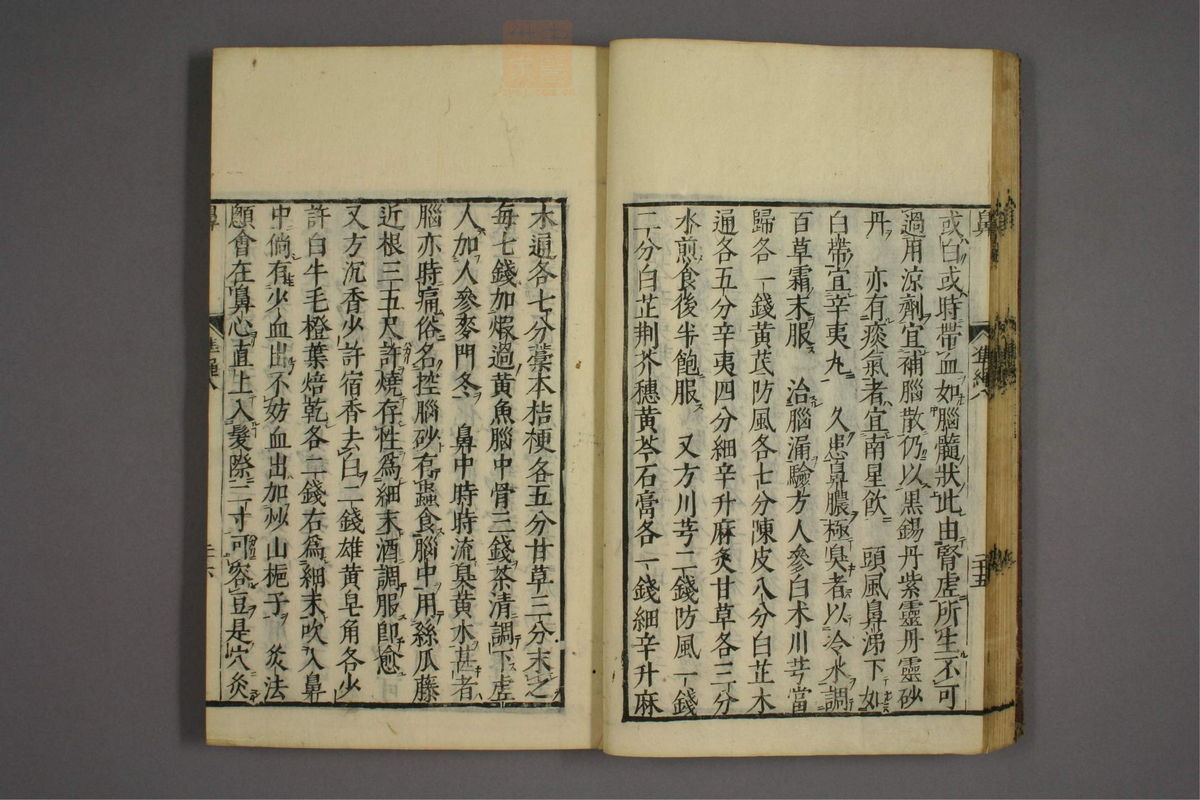 鼻 準繩八 二十五
或白或時帶血如腦髓狀此由腎虛所生不可
過用涼劑宜補腦散仍以黒錫丹紫靈丹靈砂
丹 亦有痰氣者宜南星飲 頭風鼻涕下如
白帶宜辛夷丸 久患鼻膿極臭者以冷水調
百草霜末服 治腦漏驗方人參白术川芎當
歸各一錢黄芪防風各七分陳皮八分白芷木
通各五分辛夷四分細辛升麻炙甘草各三分
水煎食後半飽服 又方川芎二錢防風一錢
二分白芷荆芥穗黄芩石膏各一錢細辛升麻
木通各七分藁本桔梗各五分甘草三分末之
毎七錢加煅過黄魚腦中骨三錢茶清調下虛
人加人參麥門冬 鼻中時時流臭黄水甚者
腦亦時痛俗名控腦砂有蟲食腦中用絲瓜藤
近根三五尺許燒存性爲細末酒調服即愈
又方沉香少許宿香去白二錢雄黄皂角各少
許白牛毛橙葉焙乾各二錢右爲細末吹入鼻
中倘有少血出不妨血出加炒山梔子 灸法
顖會在鼻心直上入髮際二寸可容豆是穴灸
鼻 準繩八 二六